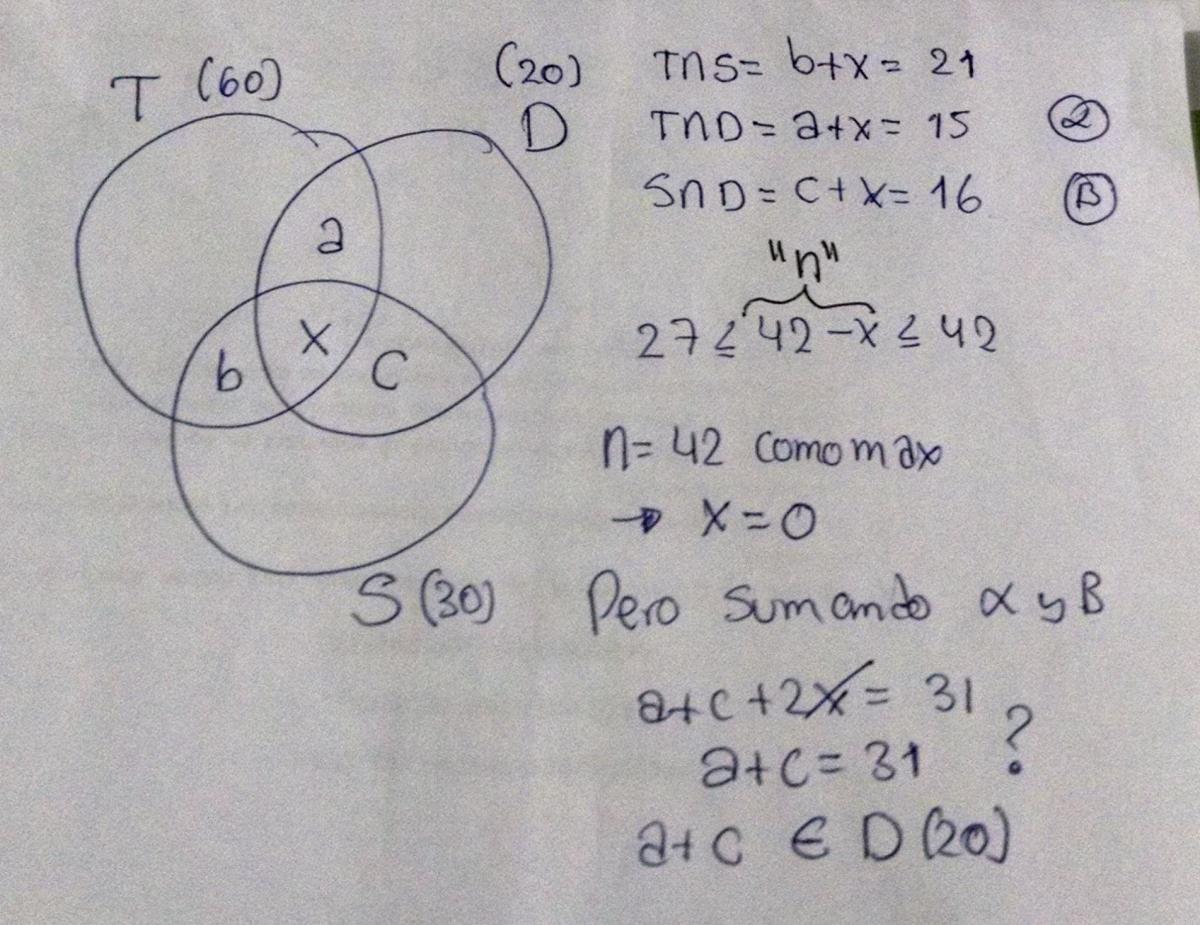 T (60)
(20)
D
a
x
b
c
S (30)
T∩S= b+x= 21
T∩D= a+x= 15 α
S∩D= c+x= 16 B
"n"
27 ≤ 42-x ≤ 42
n= 42 como max
→ x=0
Pero sumando α y B
a+c+2x= 31
a+c= 31 ?
a+c ∈ D (20)